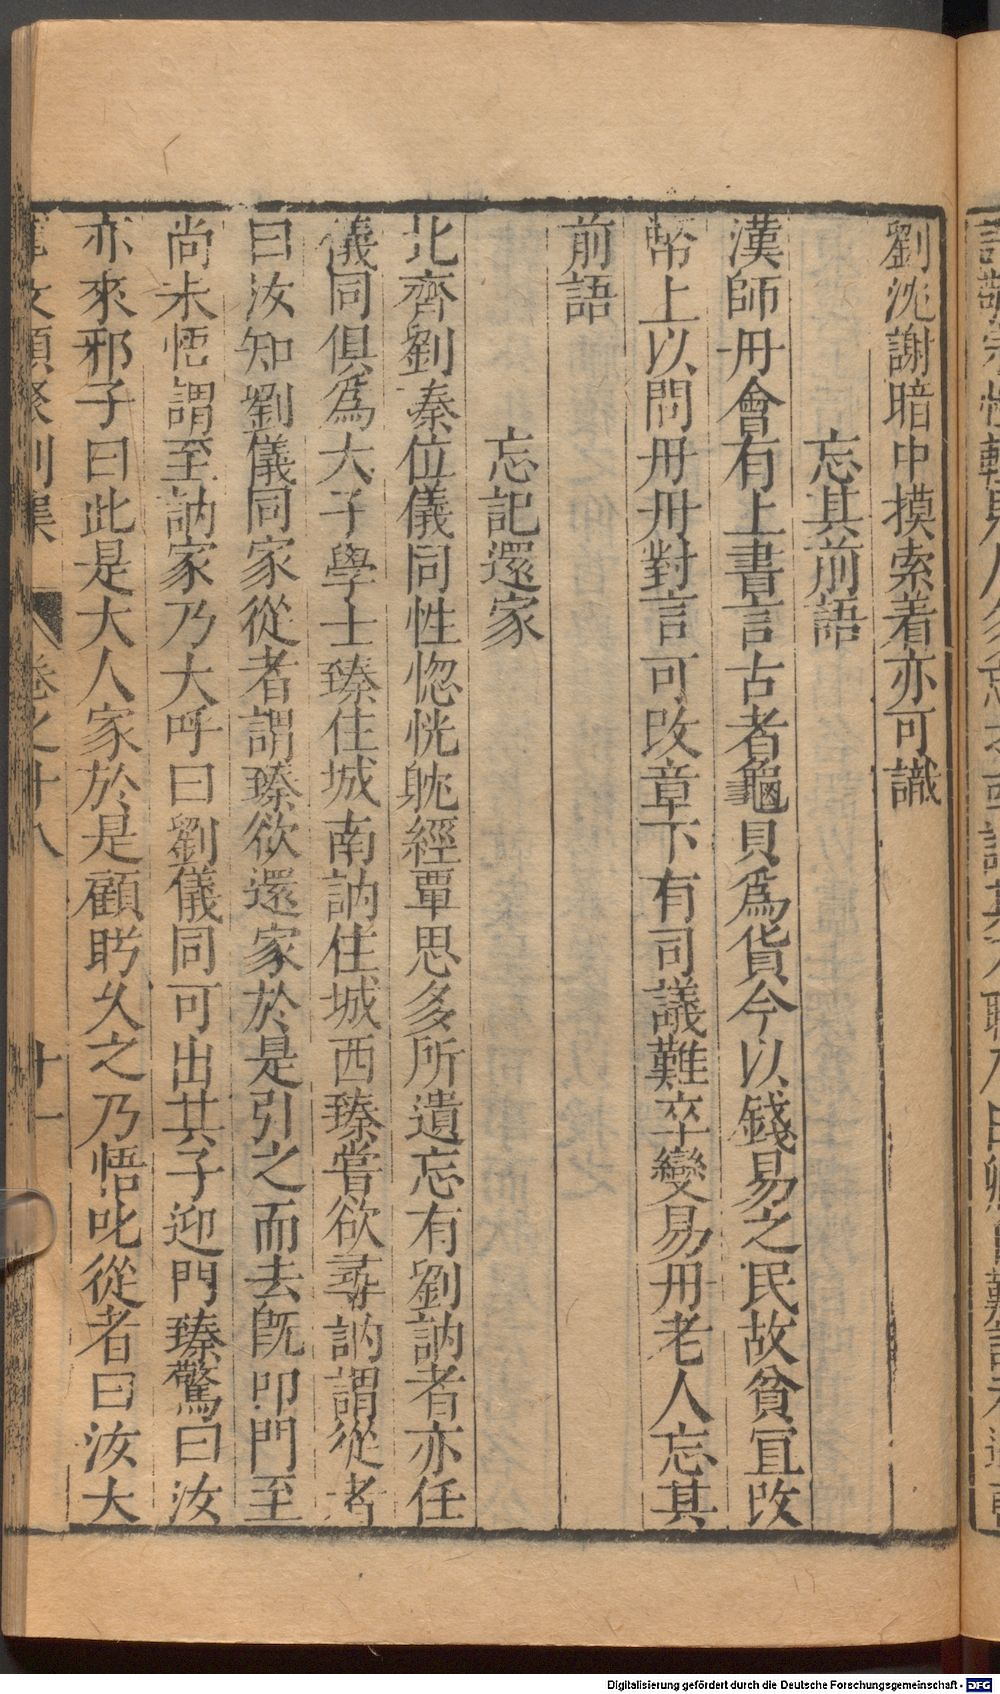 劉沈謝暗中摸索着亦可識
忘其前語
漢師丹會有上書言古者龜貝爲貨今以錢易之民故貧宜改
幣上以問丹丹對言可改章下有司議難卒變易丹老人忘其
前語
忘記還家
北齊劉秦位儀同性惚恍躭經覃思多所遺忘有劉訥者亦任
儀同俱爲大子學士臻住城南訥住城西臻嘗欲尋訥謂從者
曰汝知劉儀同家從者謂臻欲還家於是引之而去旣叩門至
尚未悟謂至訥家乃大呼曰劉儀同可出其子迎門臻驚曰汝
亦來邪子曰此是大人家於是顧盻久之乃悟叱從者曰汝大
事文類聚別集 卷之十八 十一
Digitalisierung gefördert durch die Deutsche Forschungsgemeinschaft - DFG